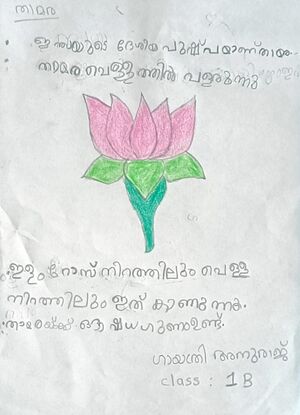 താമര
• ഇന്ത്യയുടെ ദേശീയ പുഷ്പമാണ് താമര.
താമര വെള്ളത്തിൽ വളരുന്നു
• ഇളം റോസ് നിറത്തിലും വെള്ള
നിറത്തിലും ഇത് കാണുന്നു.
• താമരയ്ക്ക് ഔഷധഗുണമുണ്ട്.
ഗായത്രി അനുരാജ്
class : 1 B